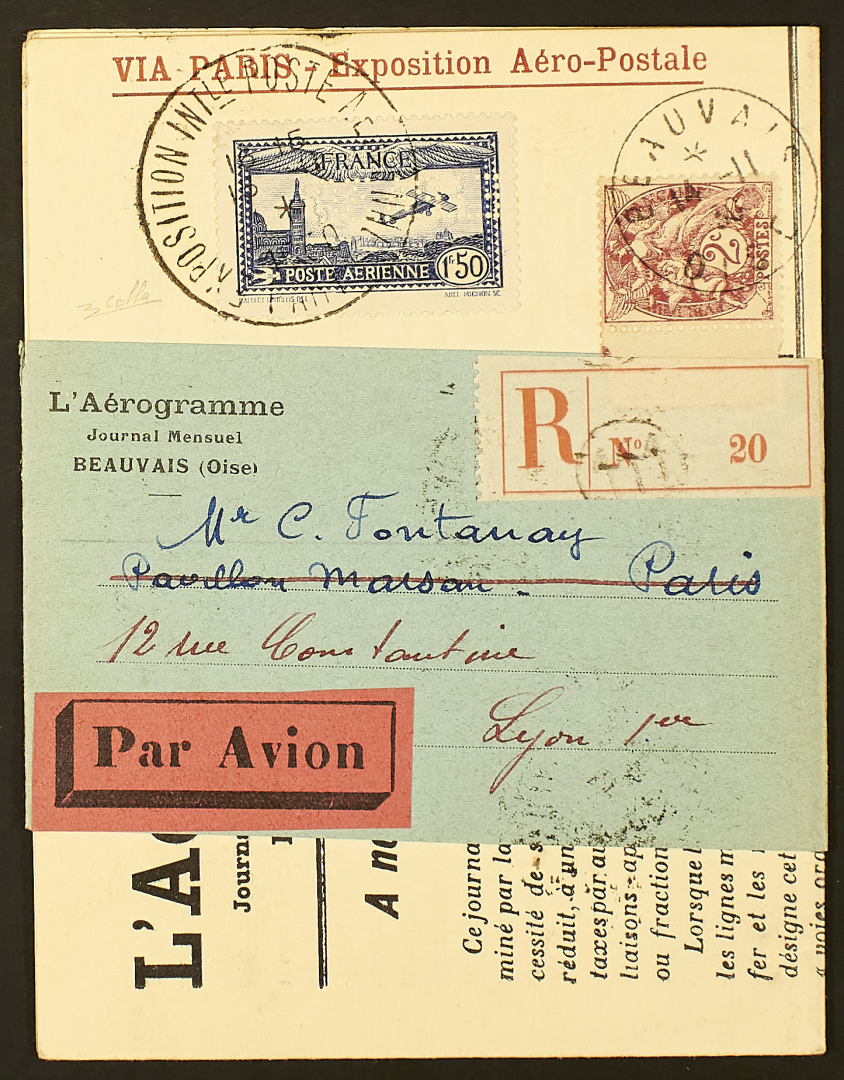 VIA PARIS - Exposition Aéro-Postale
EXPOSITION INTLE POSTE AE
18 15
FRANCE
POSTE AERIENNE 1F50
ABEL MICHON SC.
BEAUVAIS
11
2c
POSTES
calla
L'Aérogramme
Journal Mensuel
BEAUVAIS (Oise)
R
No 20
Mr C. Fontanay
Pavillon Marsan - Paris
12 rue Constantine
Lyon 1er
Par Avion
L'A
Journ
A no
Ce journa
miné par la
cessité de s
réduit, à un
taxes par au
liaisons ap
ou fraction
Lorsque l
les lignes m
fer et les
désigne cet